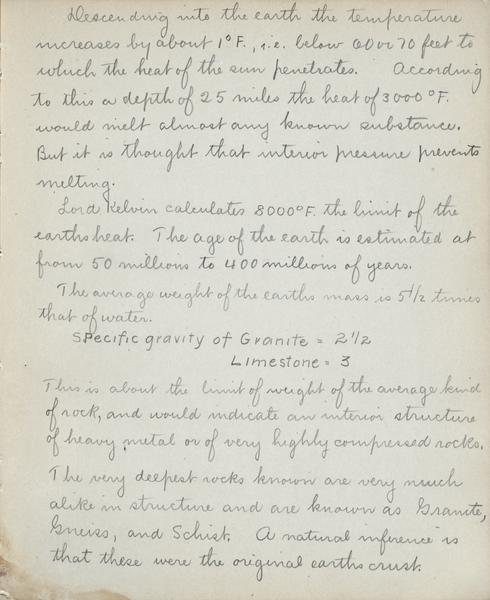 Descending into the earth the temperature
increases by about 1°F., i.e. below 60 or 70 feet to
which the heat of the sun penetrates. According
to this a depth of 25 miles the heat of 3000°F.
would melt almost any known substance.
But it is thought that interior pressure prevents
melting.
Lord Kelvin calculates 8000°F. the limit of the
earths heat. The age of the earth is estimated at
from 50 millions to 400 millions of years.
The average weight of the earths mass is 5 1/2 times
that of water.
Specific gravity of Granite = 2 1/2
Limestone = 3
This is about the limit of weight of the average kind
of rock, and would indicate an interior structure
of heavy metal or of very highly compressed rocks.
The very deepest rocks known are very much
alike in structure and are known as Granite,
Gneiss, and Schist. A natural inference is
that these were the original earths crust.